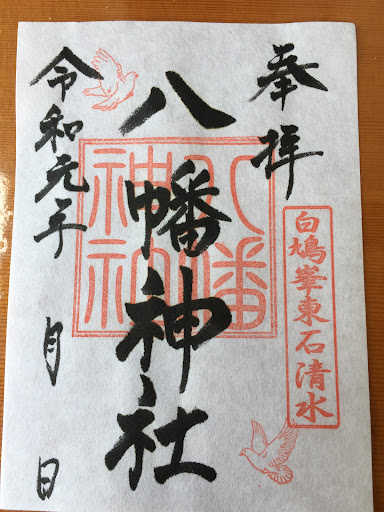 奉拝
白鳩峯東石清水
八幡神社
八幡神社
令和元年 月 日